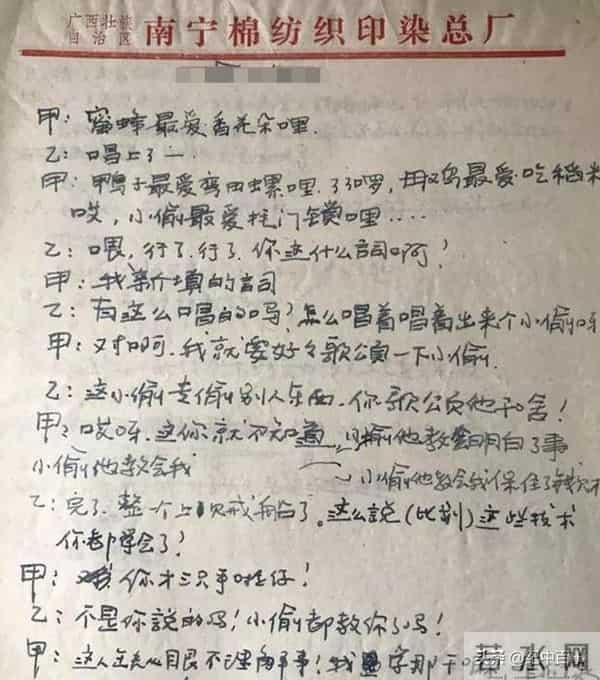 广西壮族
自治区 南宁棉纺织印染总厂
甲：蜜蜂最爱香花朵哩.
乙：唱上了一
甲：鸭子最爱弯田螺哩.了啰，最爱吃稻米
哎，小偷最爱门锁哩....
乙：喂，行了.行了.你这什么词啊！
甲：我新填的词
乙：有这么唱的吗？怎么唱着唱着出来个小偷呀
甲：对啊.我就要好々歌颂一下小偷
乙：这小偷专偷别人东西.你歌颂他干啥！
甲：哎呀.这你就不知道，小偷他教会明白了事
小偷他教会我
小偷他教会我保住了钱
乙：完了.整一个上贼船了。这么説(比划)这些技术
你都学会了！
甲：你才三只手仔！
乙：不是你説的吗！小偷都教你了吗！
甲：这人
头条@